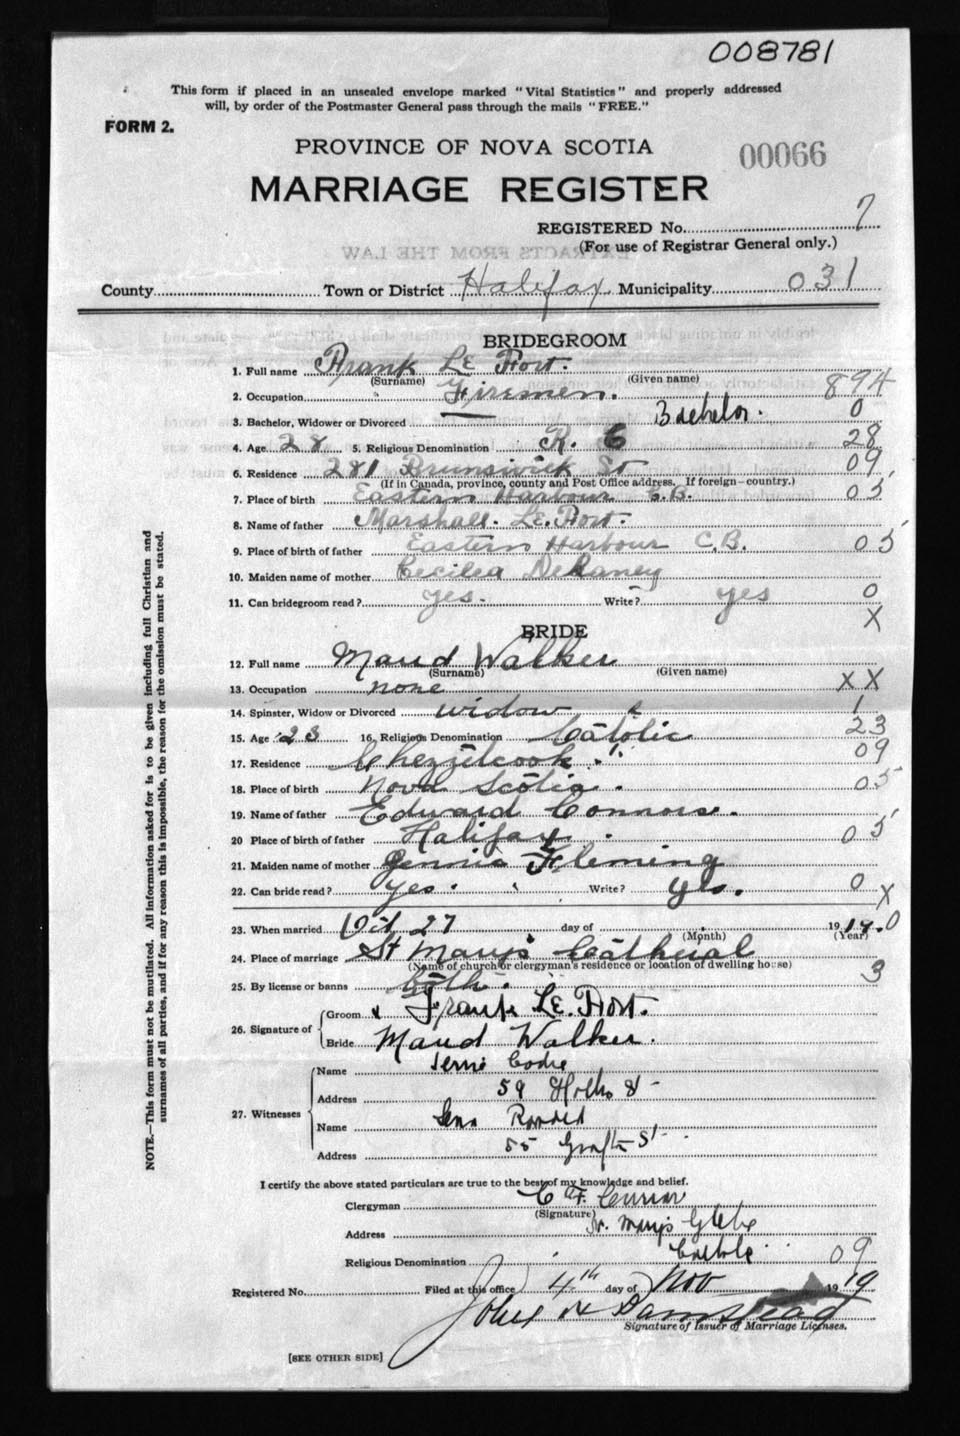 008781
This form if placed in an unsealed envelope marked "Vital Statistics" and properly addressed
will, by order of the Postmaster General pass through the mails "FREE."
FORM 2.
PROVINCE OF NOVA SCOTIA
00066
MARRIAGE REGISTER
REGISTERED No. 7
(For use of Registrar General only.)
EXTRACTS FROM THE LAW
County Town or District Halifax Municipality 031
BRIDEGROOM
1. Full name Frank Le Fort.
(Surname) (Given name)
2. Occupation Firemen. 894
3. Bachelor, Widower or Divorced Bachelor. 0
4. Age 28 5. Religious Denomination R. C 28
6. Residence 281 Brunswick St 09
(If in Canada, province, county and Post Office address. If foreign—country.)
7. Place of birth Eastern Harbour C.B. 05
8. Name of father Marshall. Le. Fort.
9. Place of birth of father Eastern Harbour C.B. 05
10. Maiden name of mother Cecilea Delaney
11. Can bridegroom read? yes. Write? yes 0
X
BRIDE
12. Full name Maud Walker
(Surname) (Given name)
13. Occupation none XX
14. Spinster, Widow or Divorced widow 1
15. Age 23 16. Religious Denomination Catolic 23
17. Residence Chezzetcook 09
18. Place of birth Nova Scotia. 05
19. Name of father Edward Connors.
20 Place of birth of father Halifax. 05
21. Maiden name of mother Jennie Fleming
22. Can bride read? yes. Write? yes. 0
X
23. When married Oct 27 day of (Month) 1919. 0
(Year)
24. Place of marriage St Mary's Cathedral
(Name of church or clergyman's residence or location of dwelling house)
25. By license or banns both. 3
26. Signature of
Groom x Frank Le. Fort.
Bride Maud Walker.
27. Witnesses
Name
Address 59
Name
Address 55 Grafton St
I certify the above stated particulars are true to the best of my knowledge and belief.
Clergyman C F. Curran
(Signature)
Address St. Mary's Glebe
Religious Denomination Catholic 09
Registered No. Filed at this office 4th day of Nov 1919
John H Barnstead
Signature of Issuer of Marriage Licenses.
[SEE OTHER SIDE]
NOTE.—This form must not be mutilated. All information asked for is to be given including full Christian and
surnames of all parties, and if for any reason this is impossible, the reason for the omission must be stated.